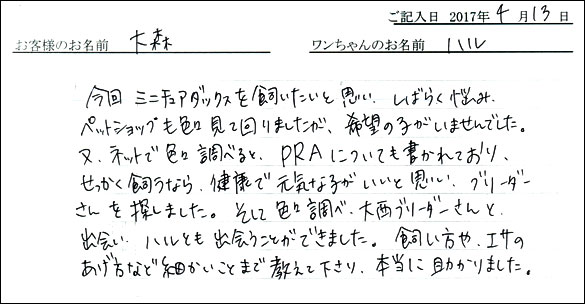 ご記入日 2017年 4月13日
お客様のお名前 大森 ワンちゃんのお名前 ハル
今回 ミニチュアダックスを飼いたいと思い、しばらく悩み、
ペットショップも色々見て回りましたが、希望の子がいませんでした。
又、ネットで色々調べると、PRAについても書かれており、
せっかく飼うなら、健康で元気な子がいいと思い、ブリーダー
さんを探しました。そして色々調べ、大西ブリーダーさんと、
出会い、ハルとも出会うことができました。飼い方や、エサの
あげ方など細かいことまで教えて下さり、本当に助かりました。